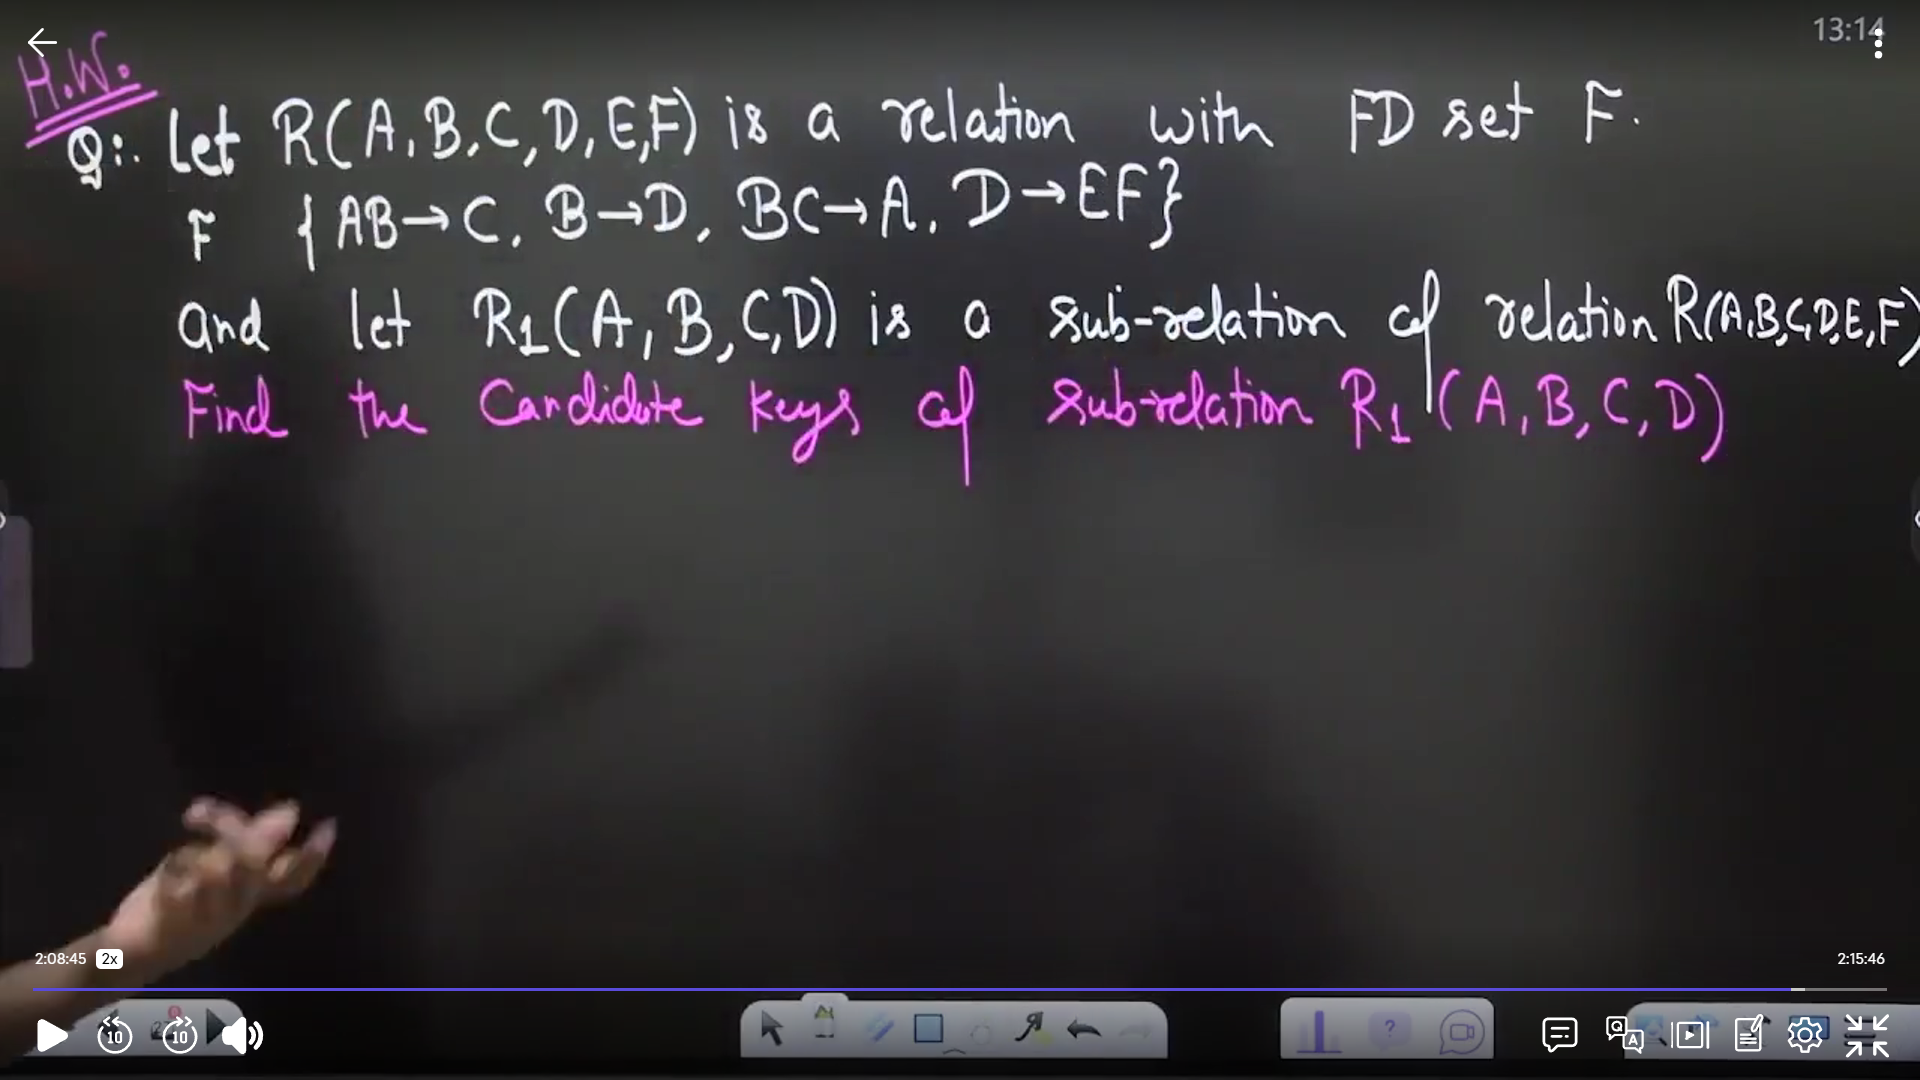 13:14
H.W.
Q:. Let R(A,B,C,D,E,F) is a relation with FD set F.
F { AB→C, B→D, BC→A, D→EF}
and let R1(A,B,C,D) is a sub-relation of relation R(A,B,C,D,E,F)
Find the Candidate keys of sub-relation R1(A,B,C,D)
2:08:45 2x 2:15:46
10 10